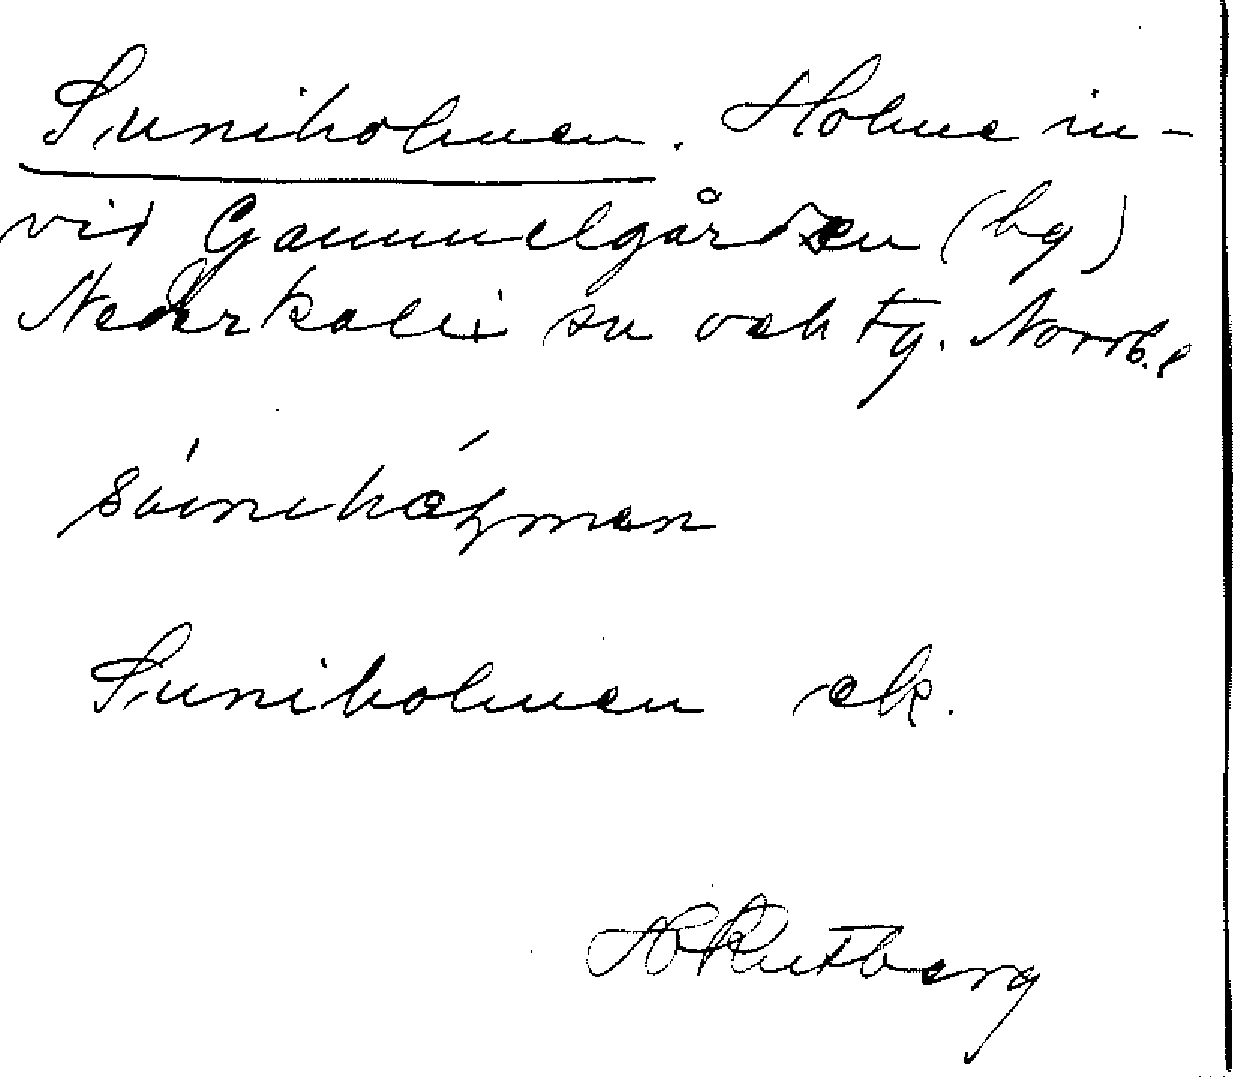 Suniholmen. Holme in-
vid Gammelgården (bg)
Nederkalix sn och tg. Norrb.l
Suniholmen ek.
H Rutberg